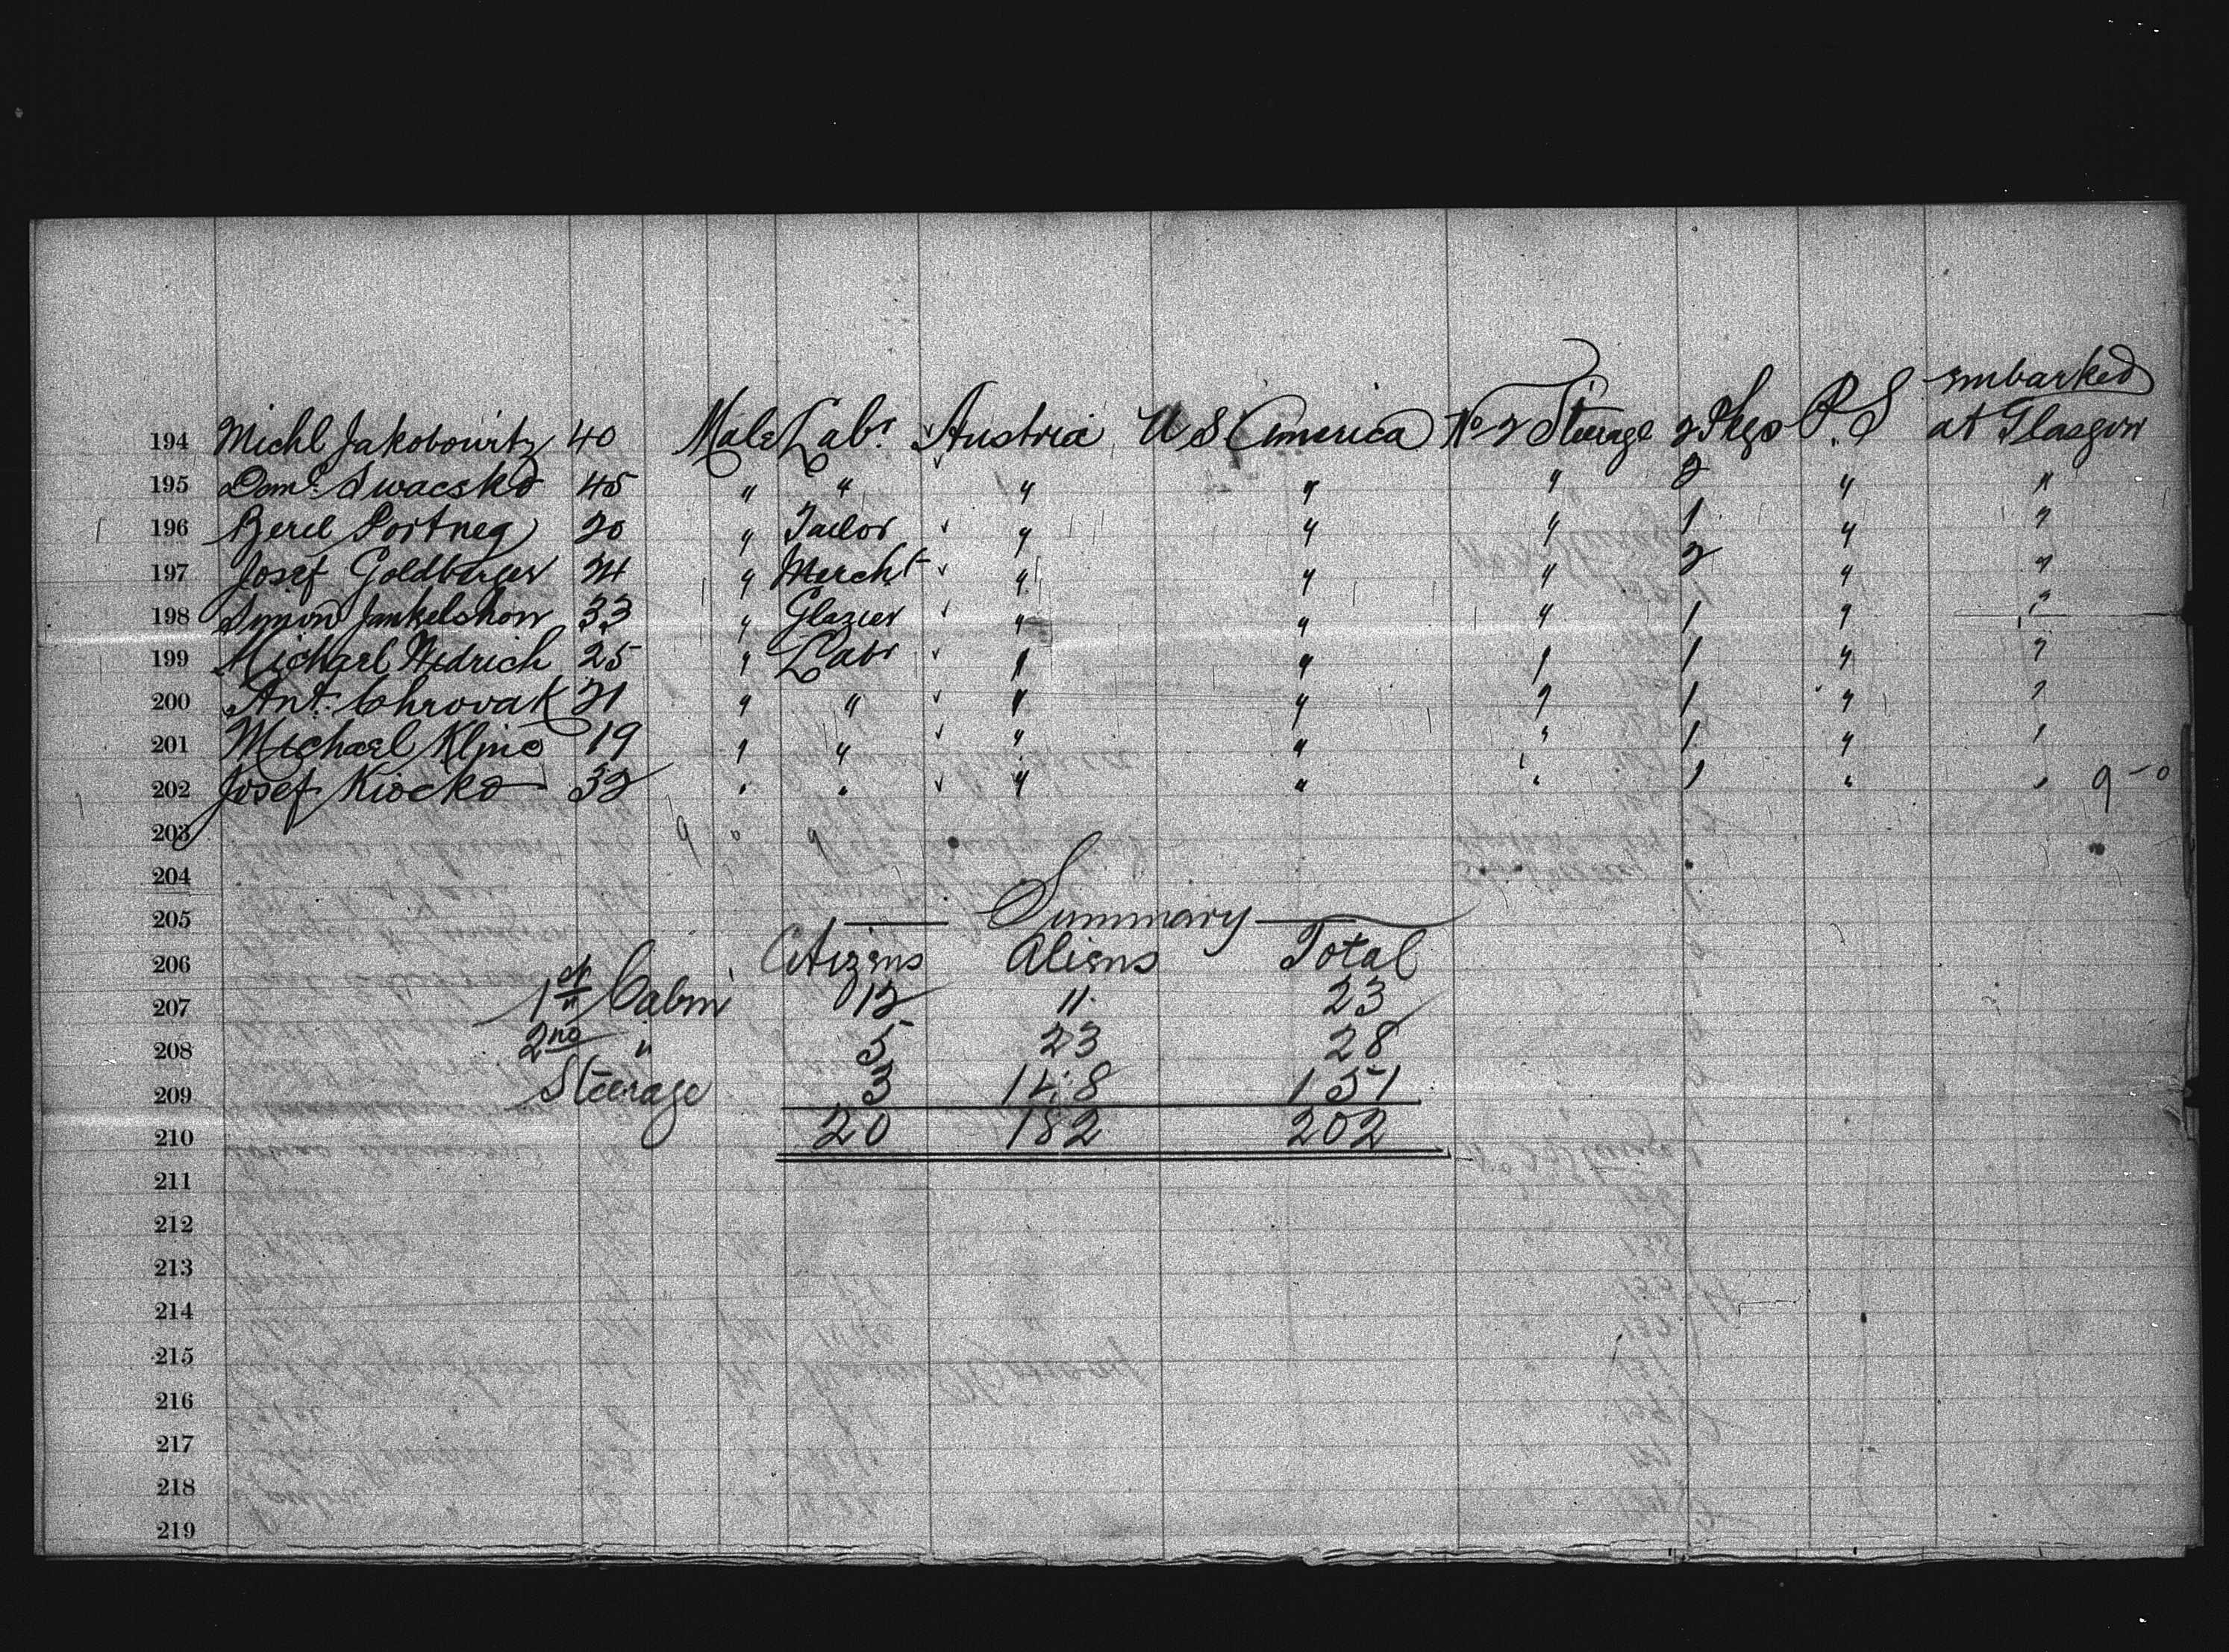 embarked
194 Michl Jakobowitz 40 Male Labr Austria U S America No 2 Steerage 2 Pkgs P. S at Glasgow
195 Danl Swacsko 45 " " " " " 2 " "
196 Berel Portneg 20 " Tailor " " " 1 " "
197 Josef Goldberger 24 " Mercht " " " 2 " "
198 Simon Jankelshon 33 " Glazier " " " 1 " "
199 Michael Nedrich 25 " Labr " " " 1 " "
200 Ant. Chrovak 21 " " " " " 1 " "
201 Michael Kline 19 " " " " " 1 " "
202 Josef Kiocko 32 " " " " " 1 " " 9-0
203 9 0 9
204
205 Summary
206 Citizens Aliens Total
207 1st Cabin 12 11 23
208 2nd " 5 23 28
209 Steerage 3 148 151
210 20 182 202
211
212
213
214
215
216
217
218
219